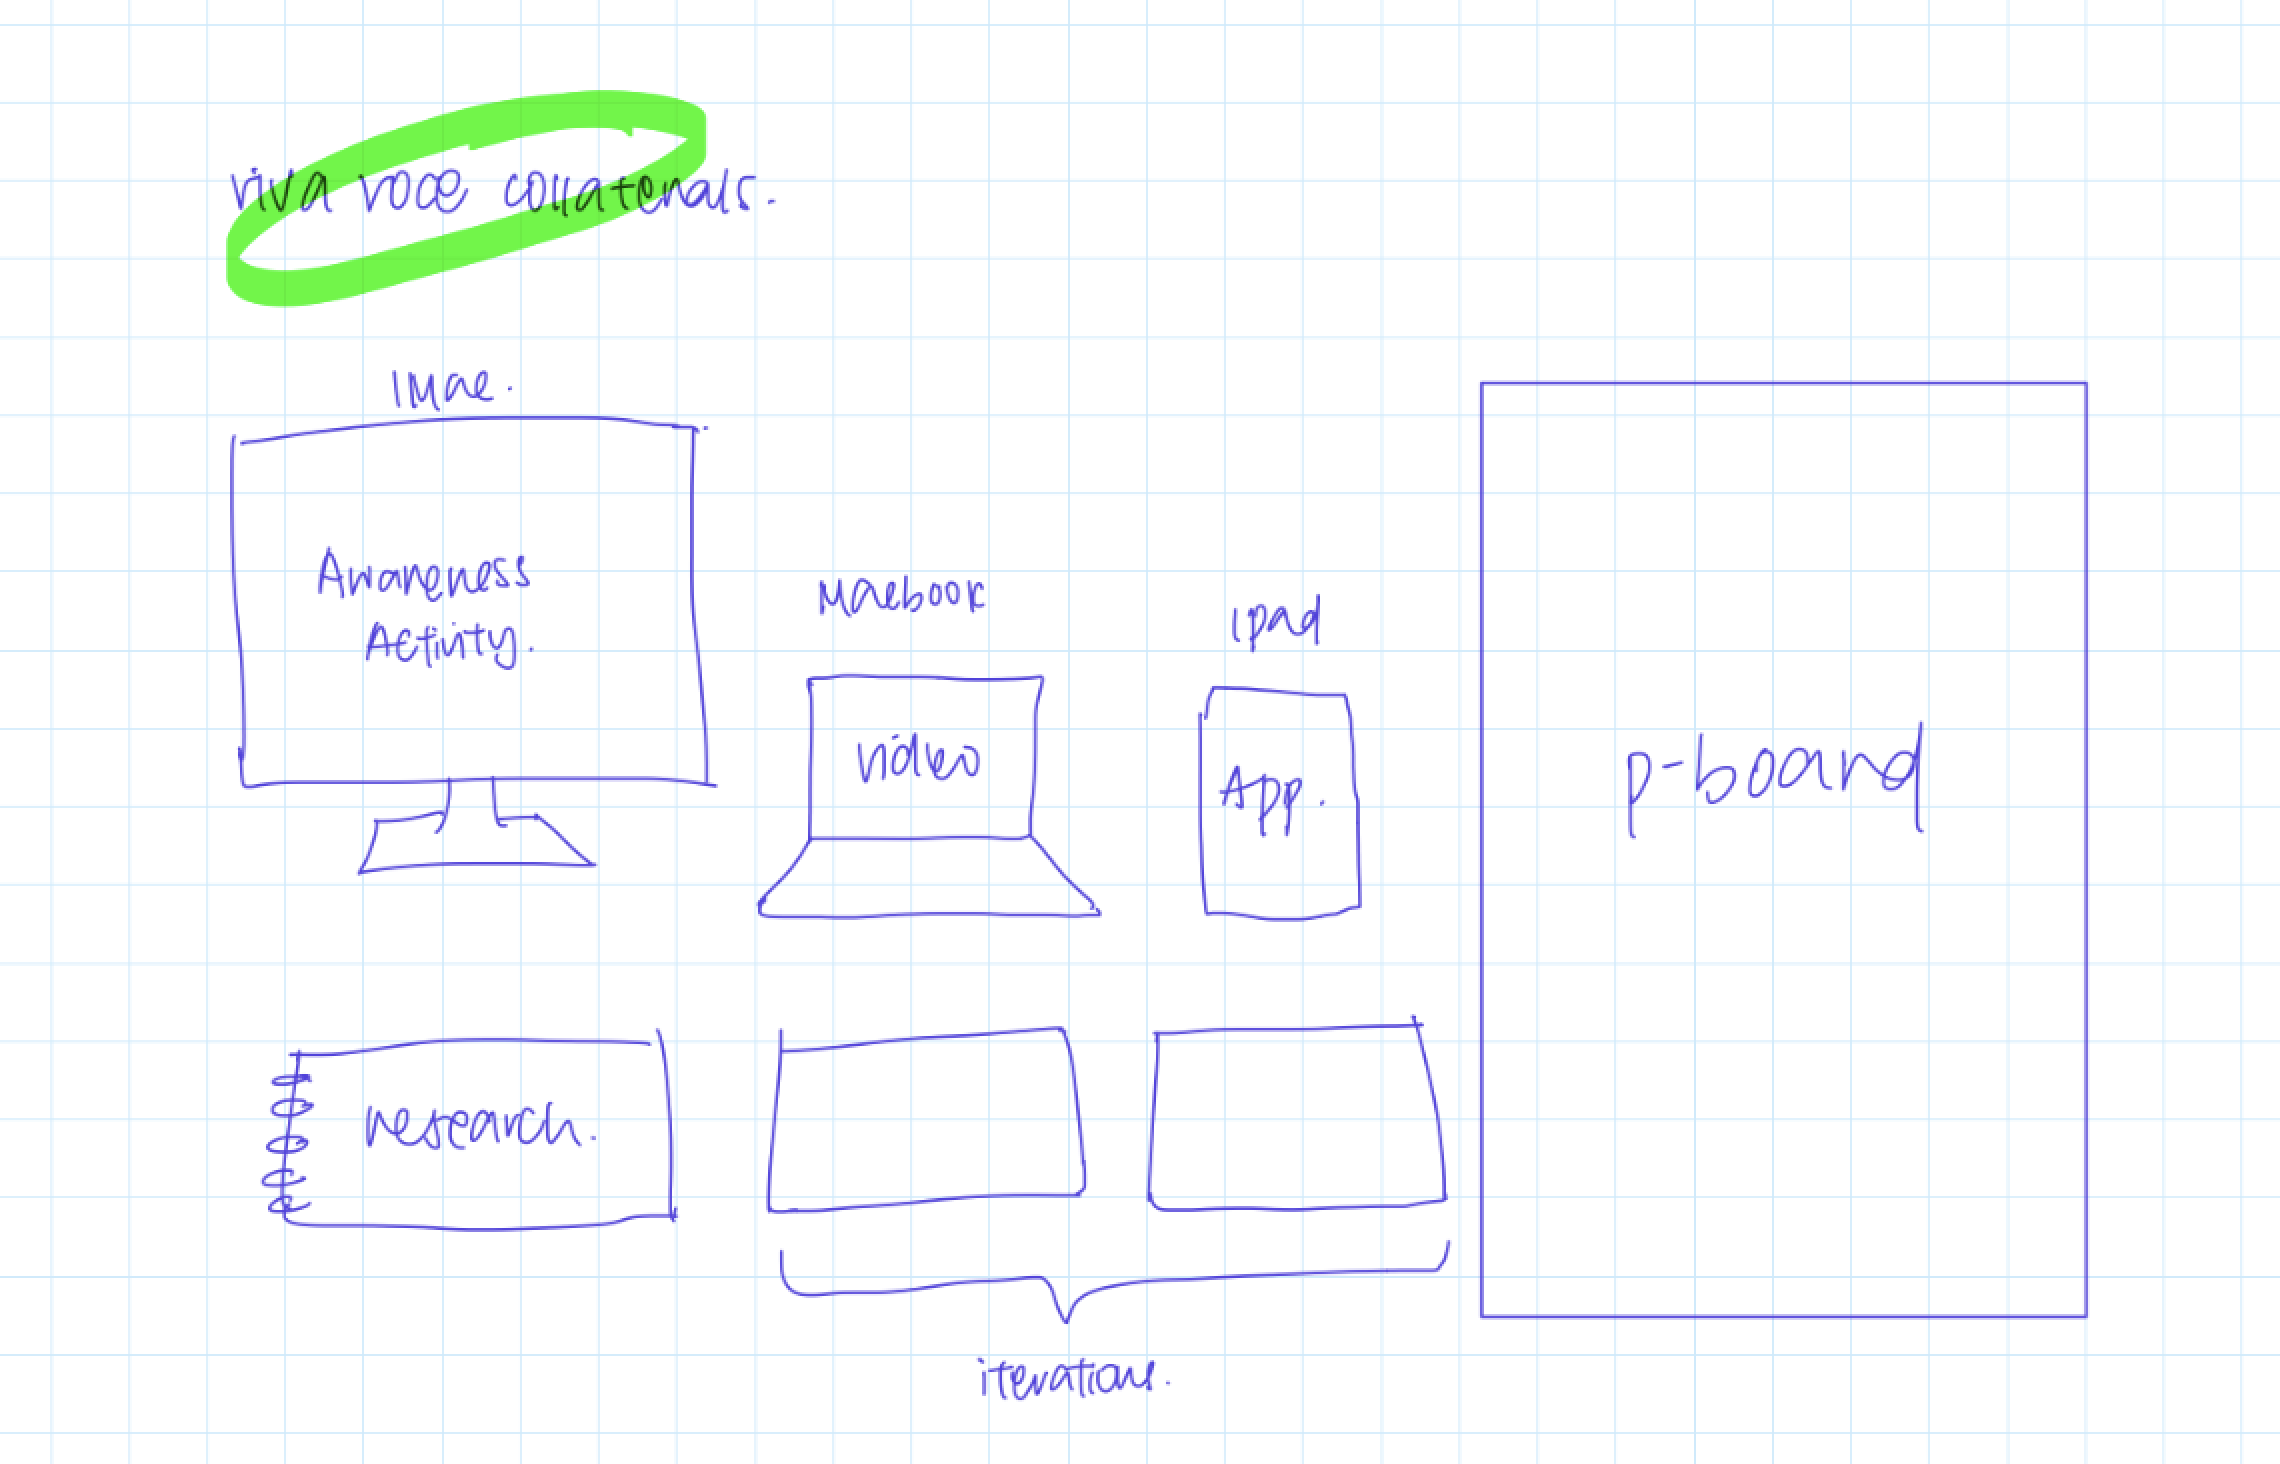 viva voce collaterals.
IMac.
Awareness
Activity.
Macbook
video
Ipad
App.
p-board
research.
iterations.